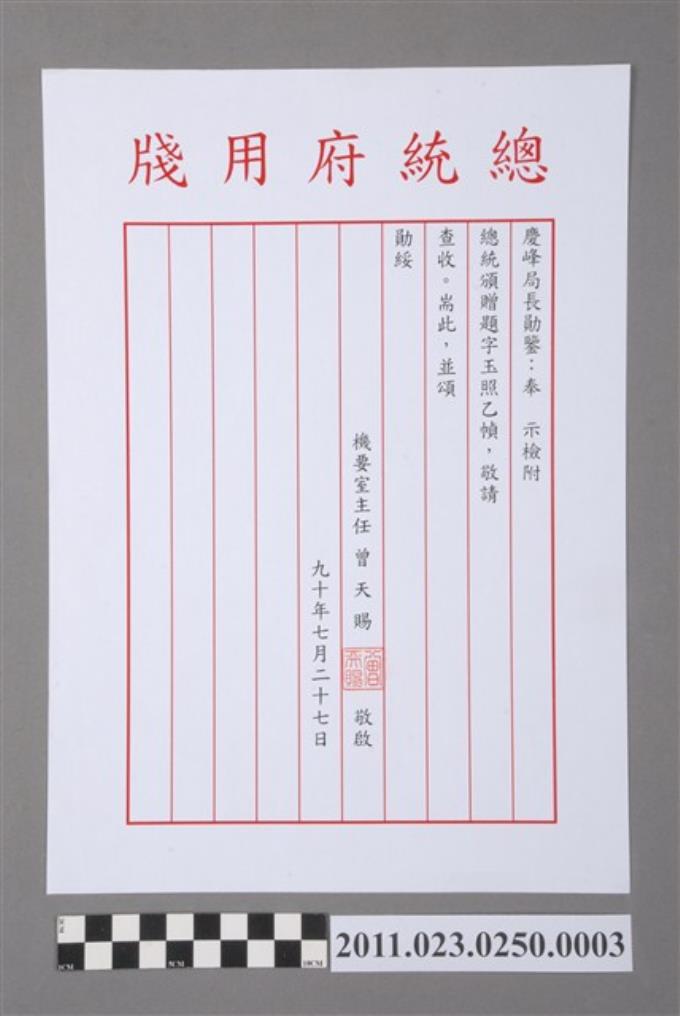 總統府用牋
慶峰局長勛鑒：奉　示檢附
總統頒贈題字玉照乙幀，敬請
查收。耑此，並頌
勛綏
機要室主任 曾天賜 曾天賜 敬啟
九十年七月二十七日
5CM
10CM
2011.023.0250.0003